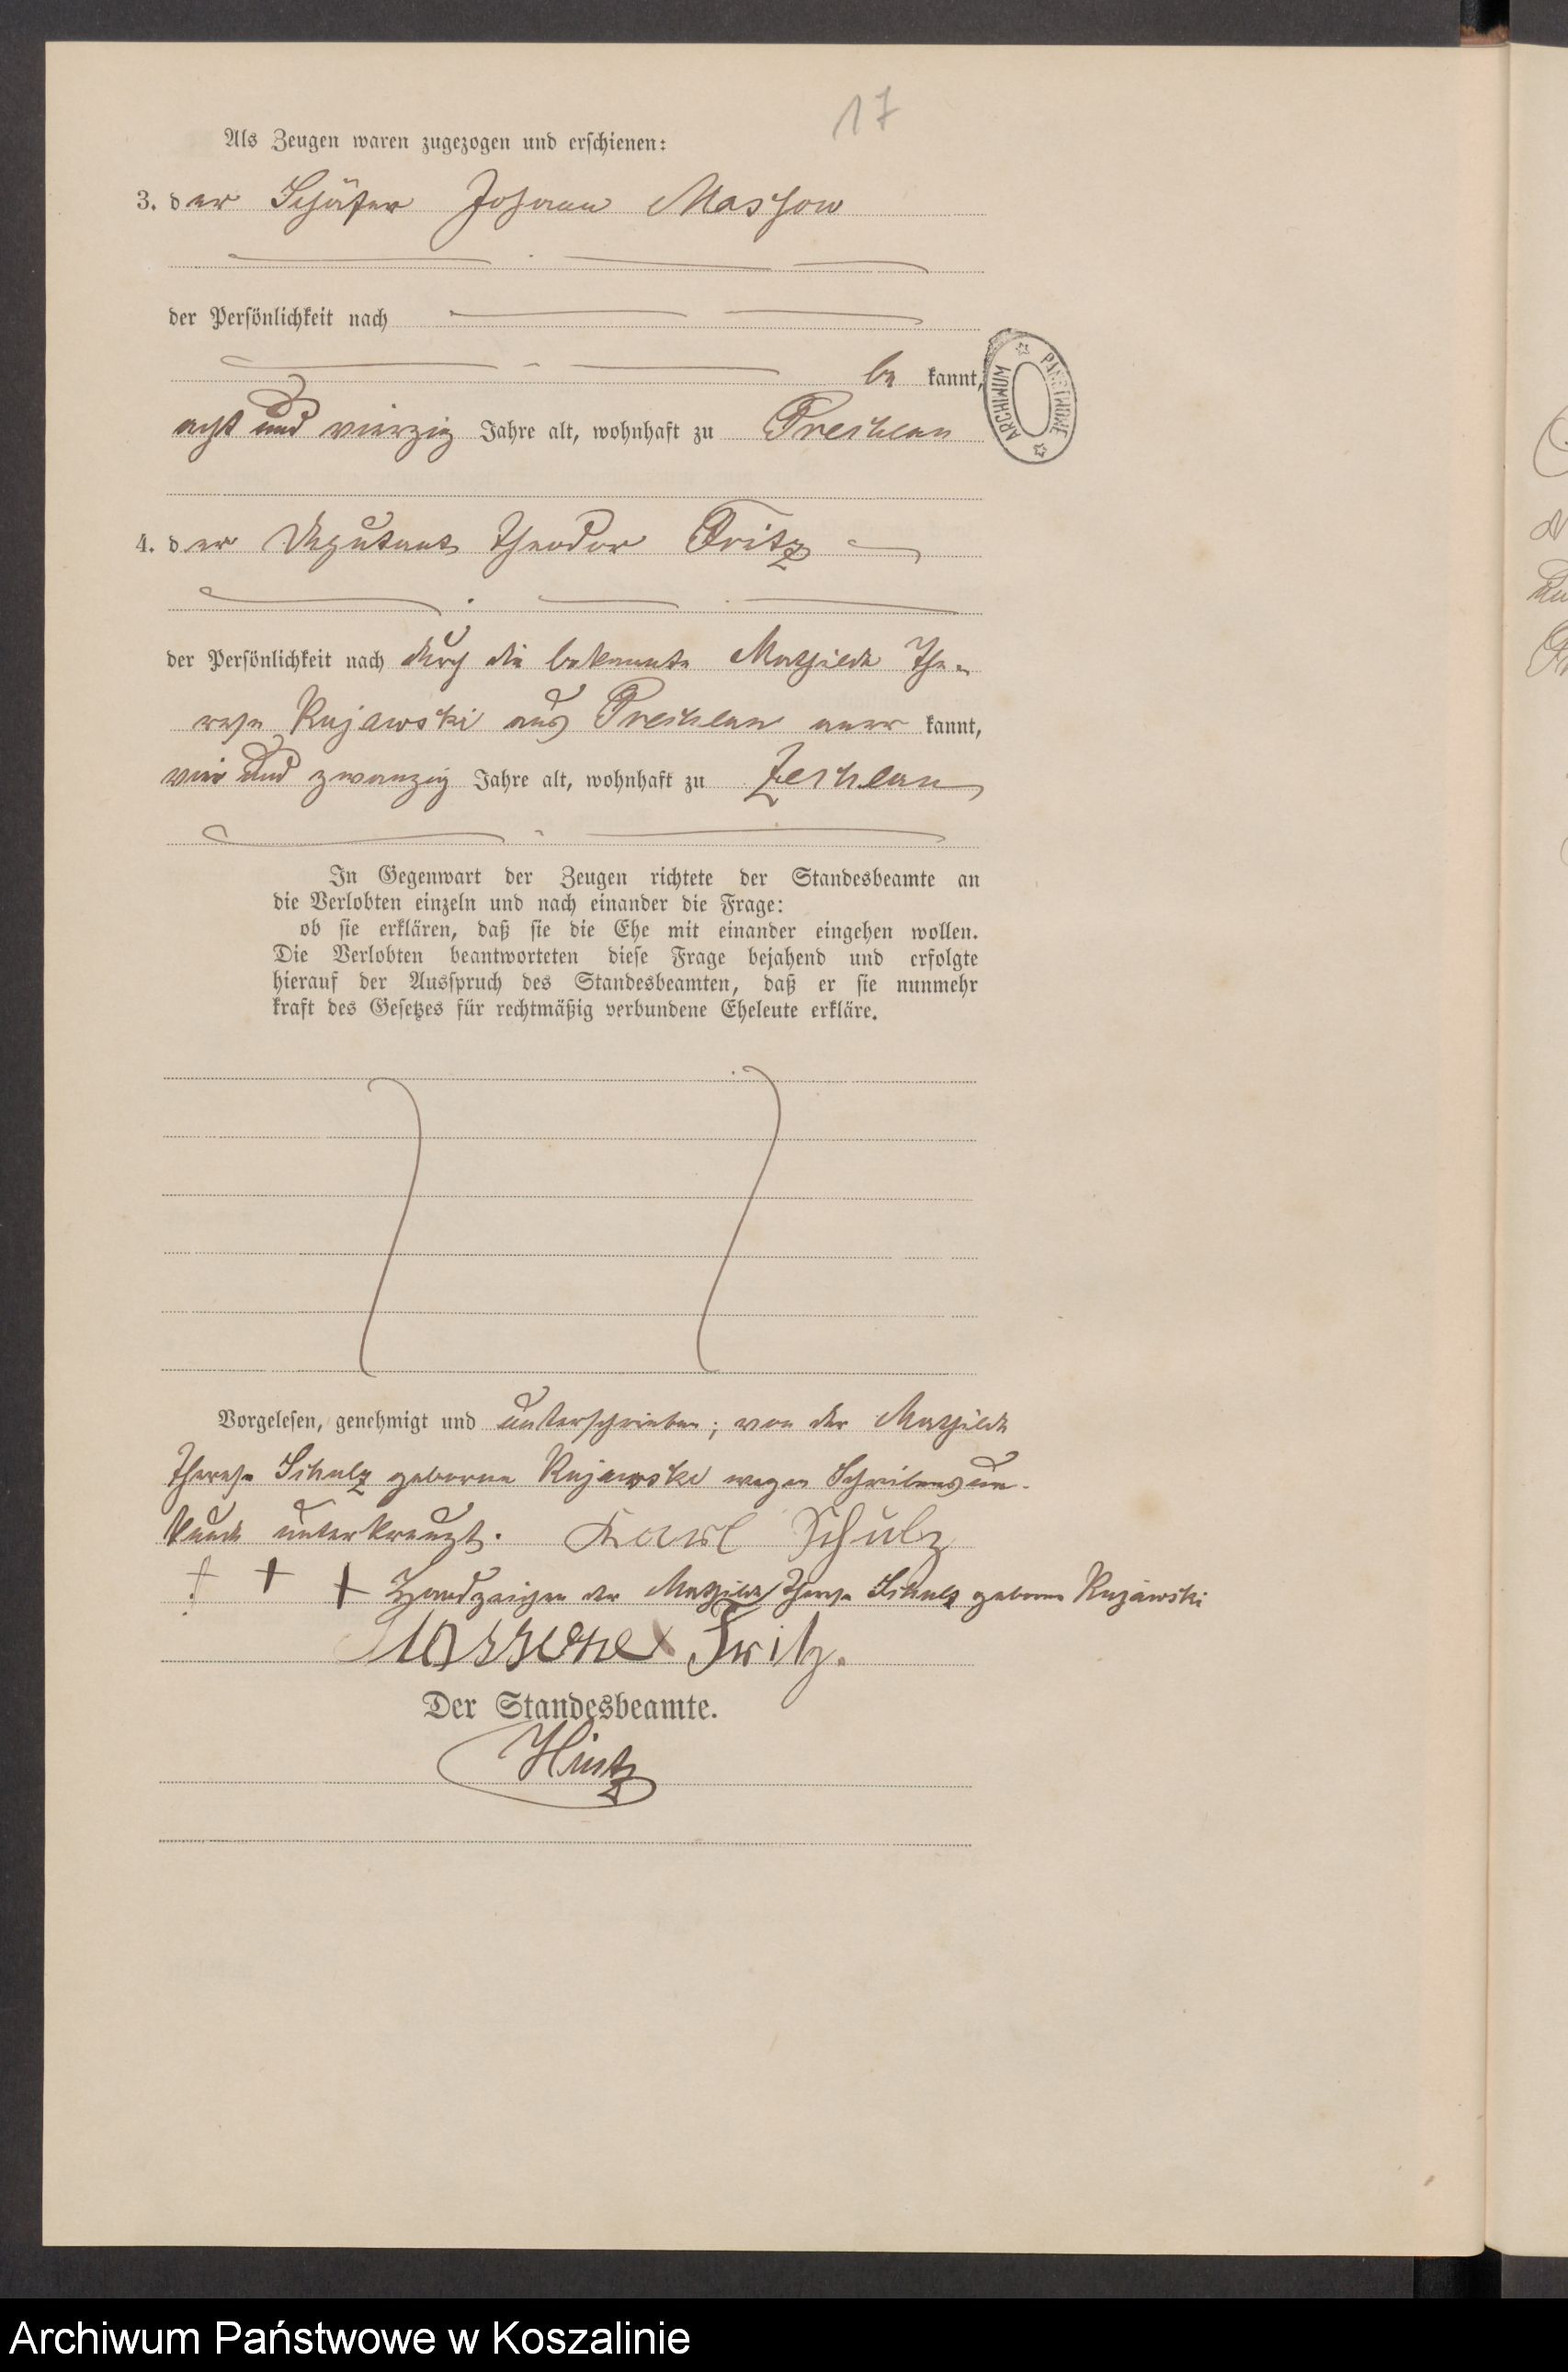 17
Als Zeugen waren zugezogen und erschienen:
3. der Schäfer Johann Massow
der Persönlichkeit nach
be kannt,
acht und vierzig Jahre alt, wohnhaft zu Prechlau
ARCHIWUM PAŃSTWOWE
4. der Deputant Theodor Fritz
der Persönlichkeit nach durch die bekannte Mathilde The-
rese Kujawski aus Prechlau aner kannt,
vier und zwanzig Jahre alt, wohnhaft zu Zechlau
In Gegenwart der Zeugen richtete der Standesbeamte an
die Verlobten einzeln und nach einander die Frage:
ob sie erklären, daß sie die Ehe mit einander eingehen wollen.
Die Verlobten beantworteten diese Frage bejahend und erfolgte
hierauf der Ausspruch des Standesbeamten, daß er sie nunmehr
kraft des Gesetzes für rechtmäßig verbundene Eheleute erkläre.
Vorgelesen, genehmigt und unterschrieben; von der Mathilde
Therese Schulz geborene Kujawski wegen Schreibensun-
kunde unterkreuzt. Karl Schulz
+ + + Handzeichen der Mathilde Therese Schulz geborene Kujawski
Fritz.
Der Standesbeamte.
Hintz
Archiwum Państwowe w Koszalinie